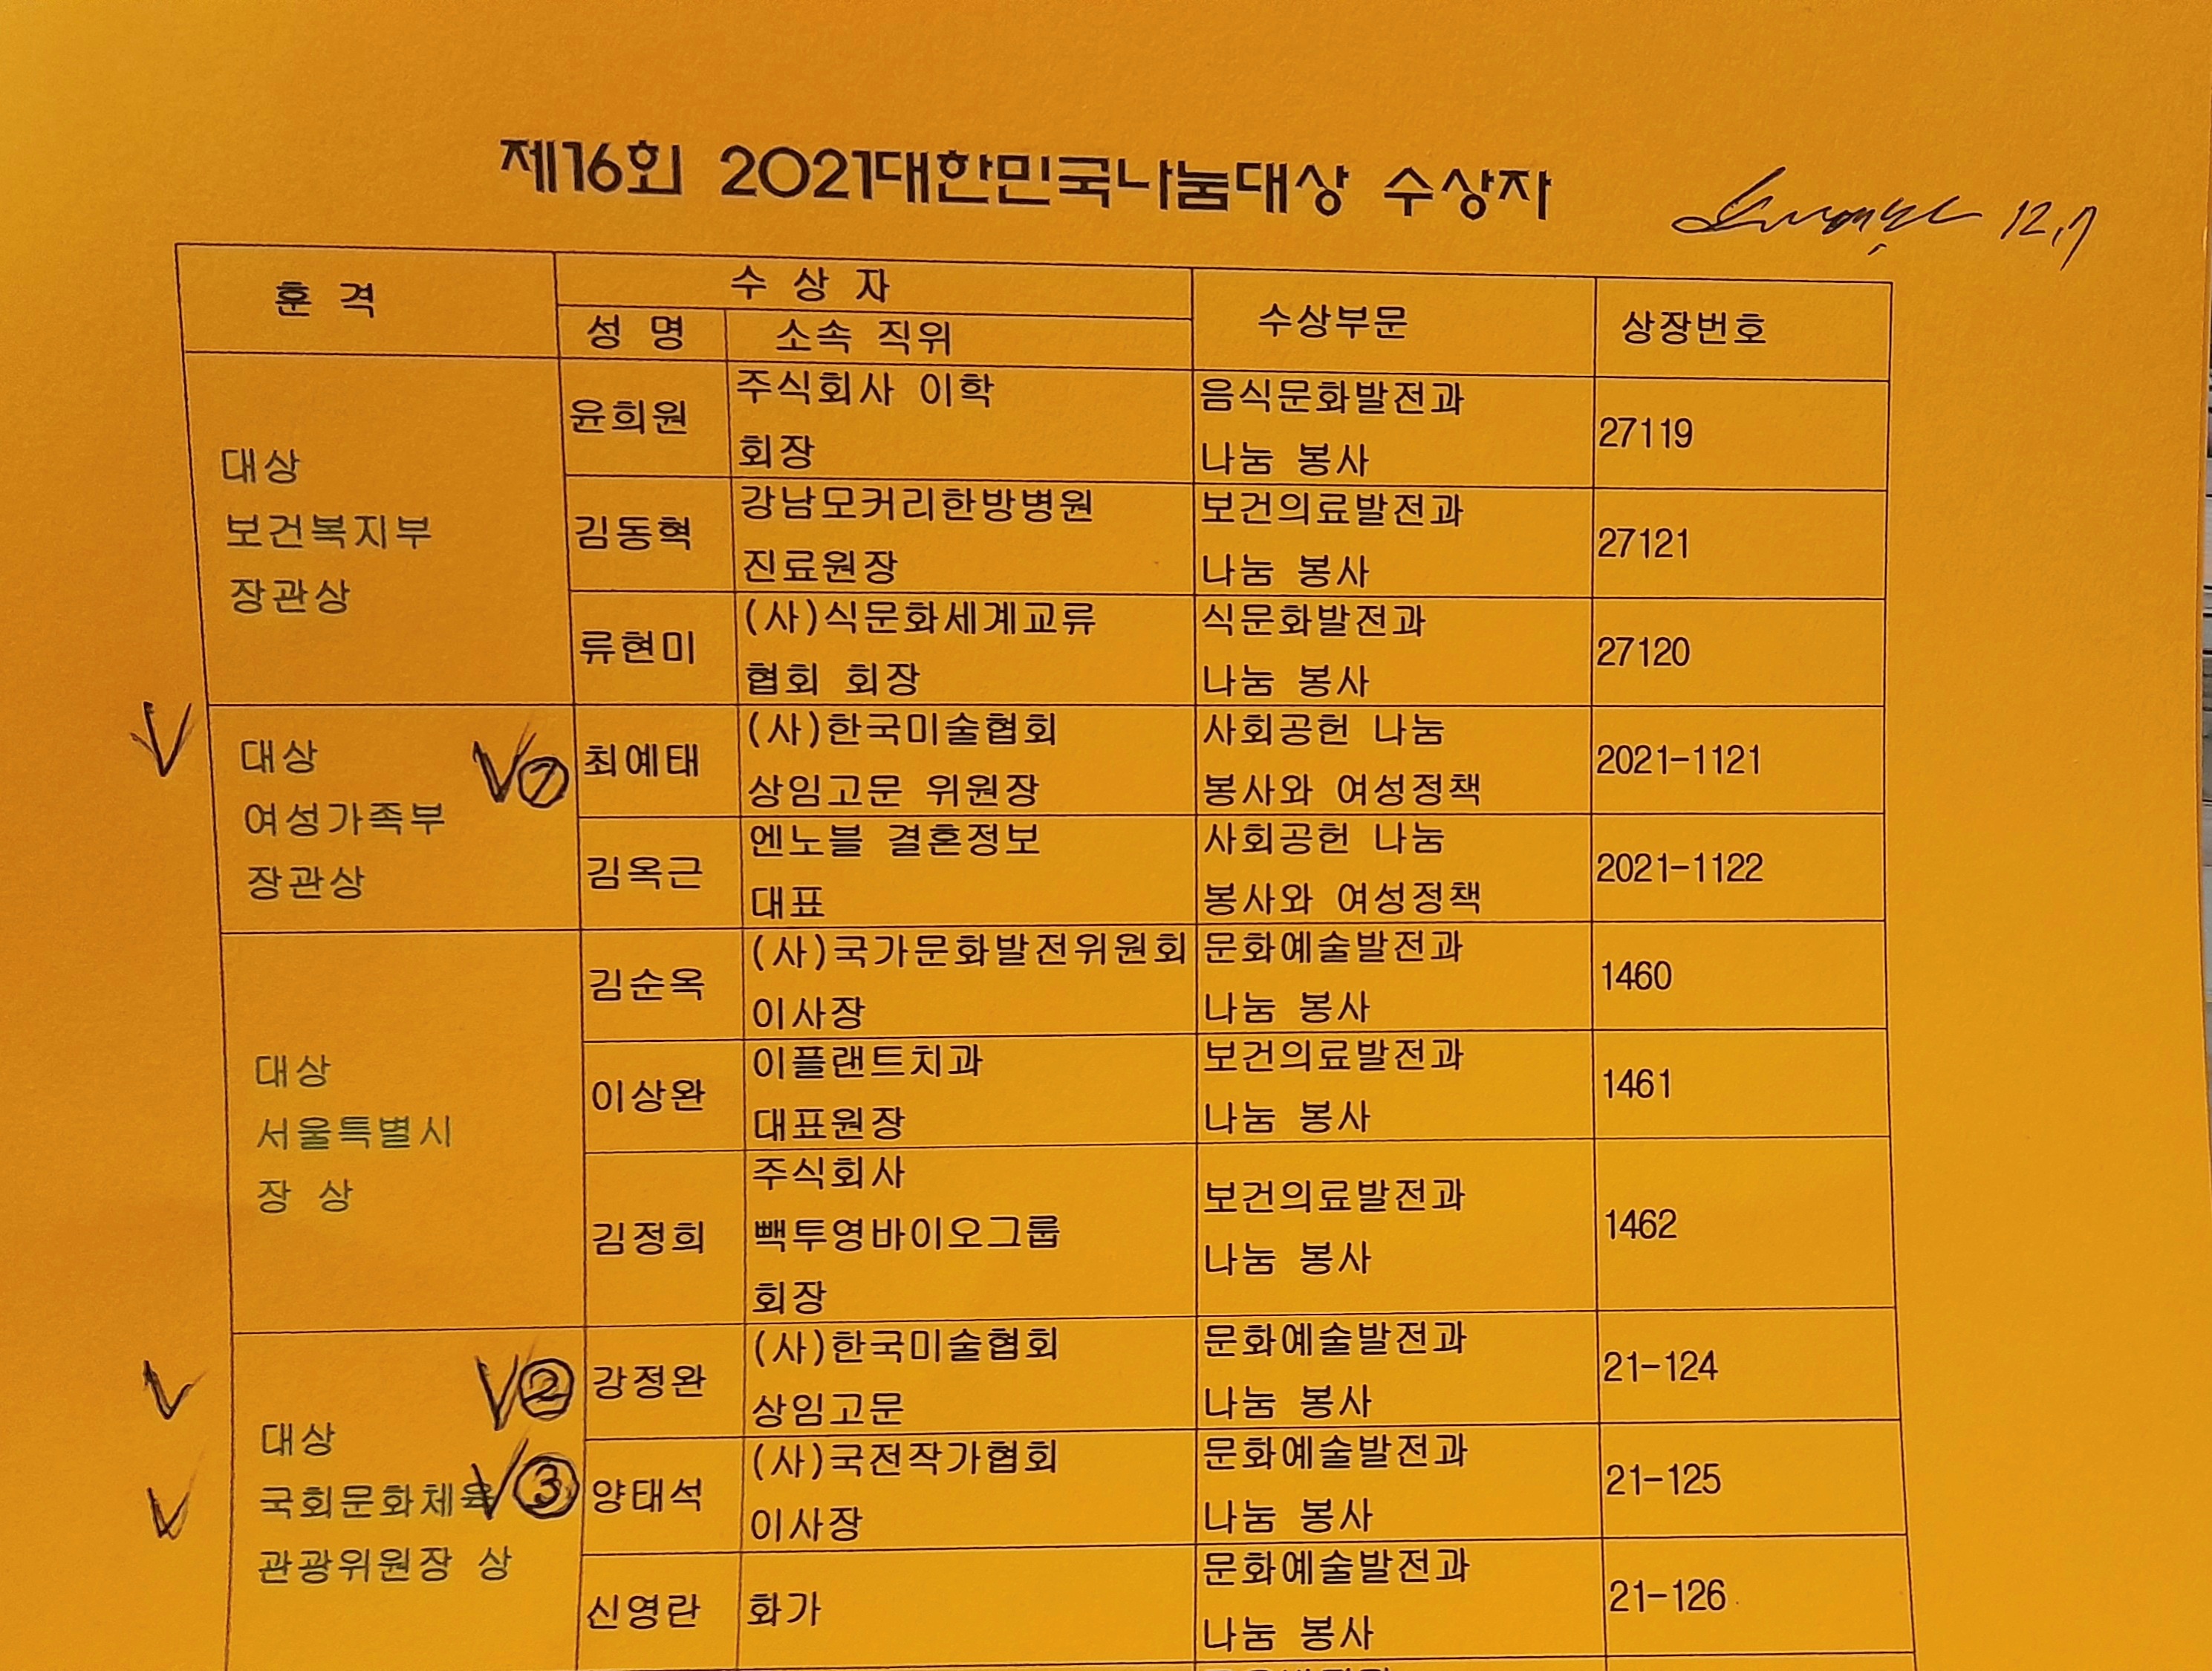 제16회 2021대한민국나눔대상 수상자
12.7
훈 격
수 상 자
수상부문
상장번호
성 명
소속 직위
대상
보건복지부
장관상
윤희원
주식회사 이학
회장
음식문화발전과
나눔 봉사
27119
김동혁
강남모커리한방병원
진료원장
보건의료발전과
나눔 봉사
27121
류현미
(사)식문화세계교류
협회 회장
식문화발전과
나눔 봉사
27120
대상
여성가족부
장관상
①
최예태
(사)한국미술협회
상임고문 위원장
사회공헌 나눔
봉사와 여성정책
2021-1121
김옥근
엔노블 결혼정보
대표
사회공헌 나눔
봉사와 여성정책
2021-1122
대상
서울특별시
장 상
김순옥
(사)국가문화발전위원회
이사장
문화예술발전과
나눔 봉사
1460
이상완
이플랜트치과
대표원장
보건의료발전과
나눔 봉사
1461
김정희
주식회사
빽투영바이오그룹
회장
보건의료발전과
나눔 봉사
1462
대상
국회문화체육
관광위원장 상
②
강정완
(사)한국미술협회
상임고문
문화예술발전과
나눔 봉사
21-124
③
양태석
(사)국전작가협회
이사장
문화예술발전과
나눔 봉사
21-125
신영란
화가
문화예술발전과
나눔 봉사
21-126